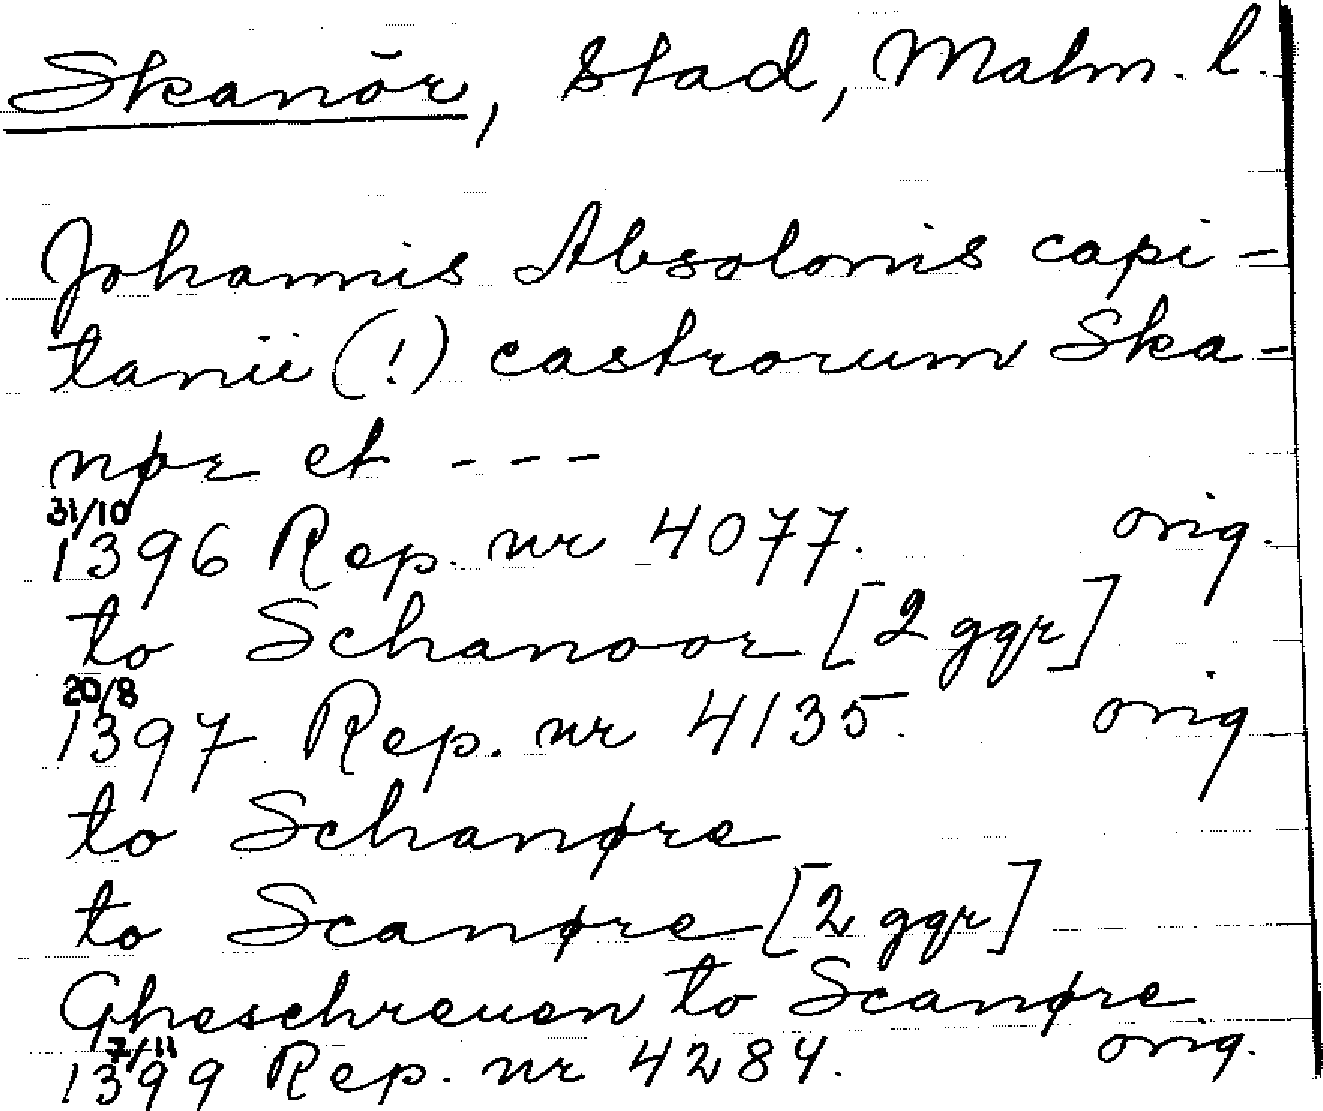 Skanör, Stad, Malm. l.
Johannis Absolonis capi-
tanii (!) castrorum Ska-
nør et ---
31/10
1396 Rep. nr 4077. orig.
to Schanoor [2 ggr]
20/8
1397 Rep. nr 4135. orig
to Schanøre
to Scanøre [2 ggr]
Gheschreuen to Scanøre
7/11
1399 Rep. nr 4284. orig.